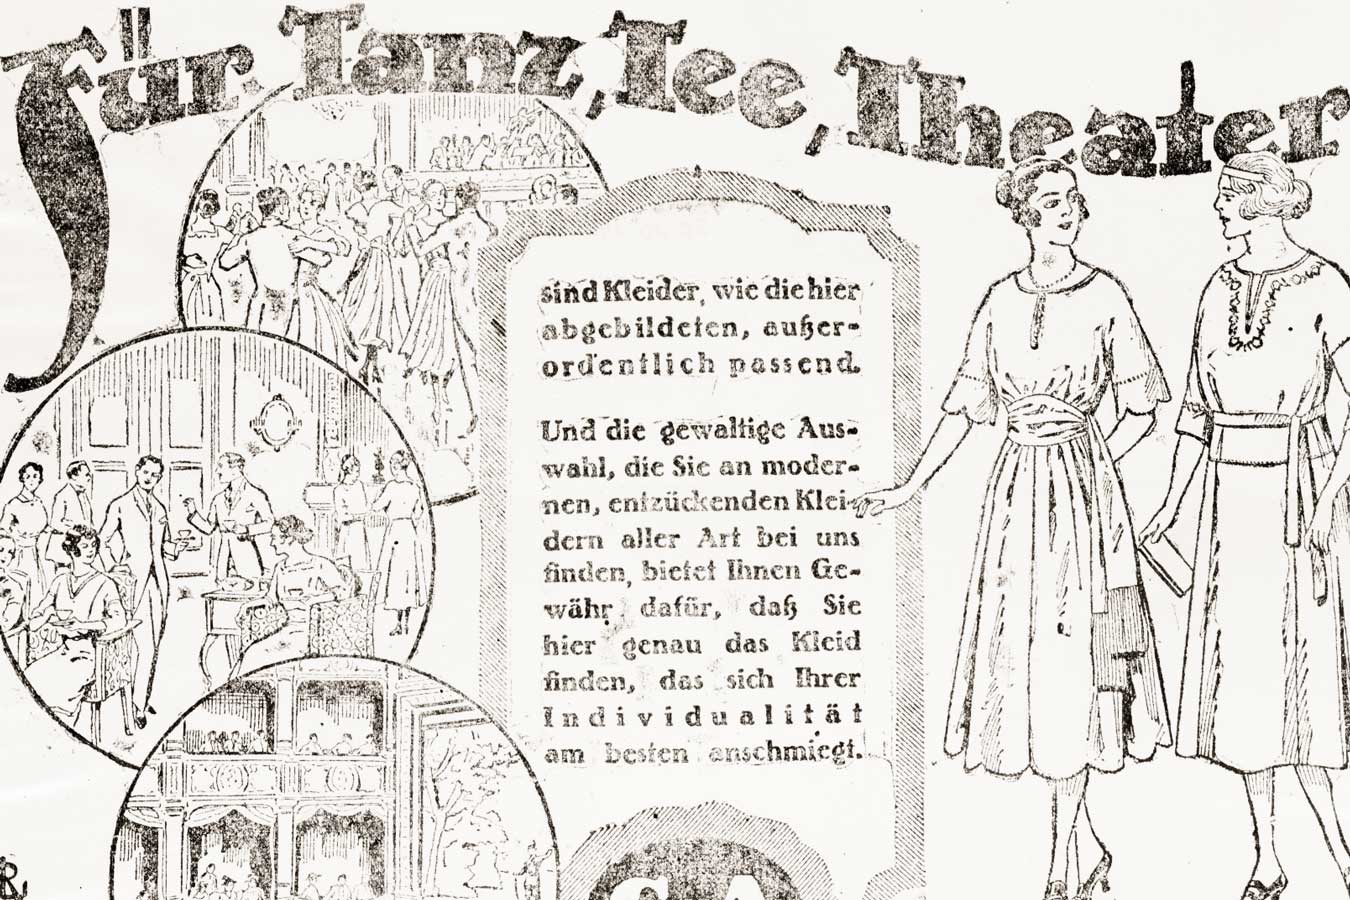 Für Tanz, Tee, Theater
sind Kleider, wie die hier
abgebildeten, außer-
ordentlich passend.
Und die gewaltige Aus-
wahl, die Sie an moder-
nen, entzückenden Klei-
dern aller Art bei uns
finden, bietet Ihnen Ge-
währ dafür, daß Sie
hier genau das Kleid
finden, das sich Ihrer
Individualität
am besten anschmiegt.